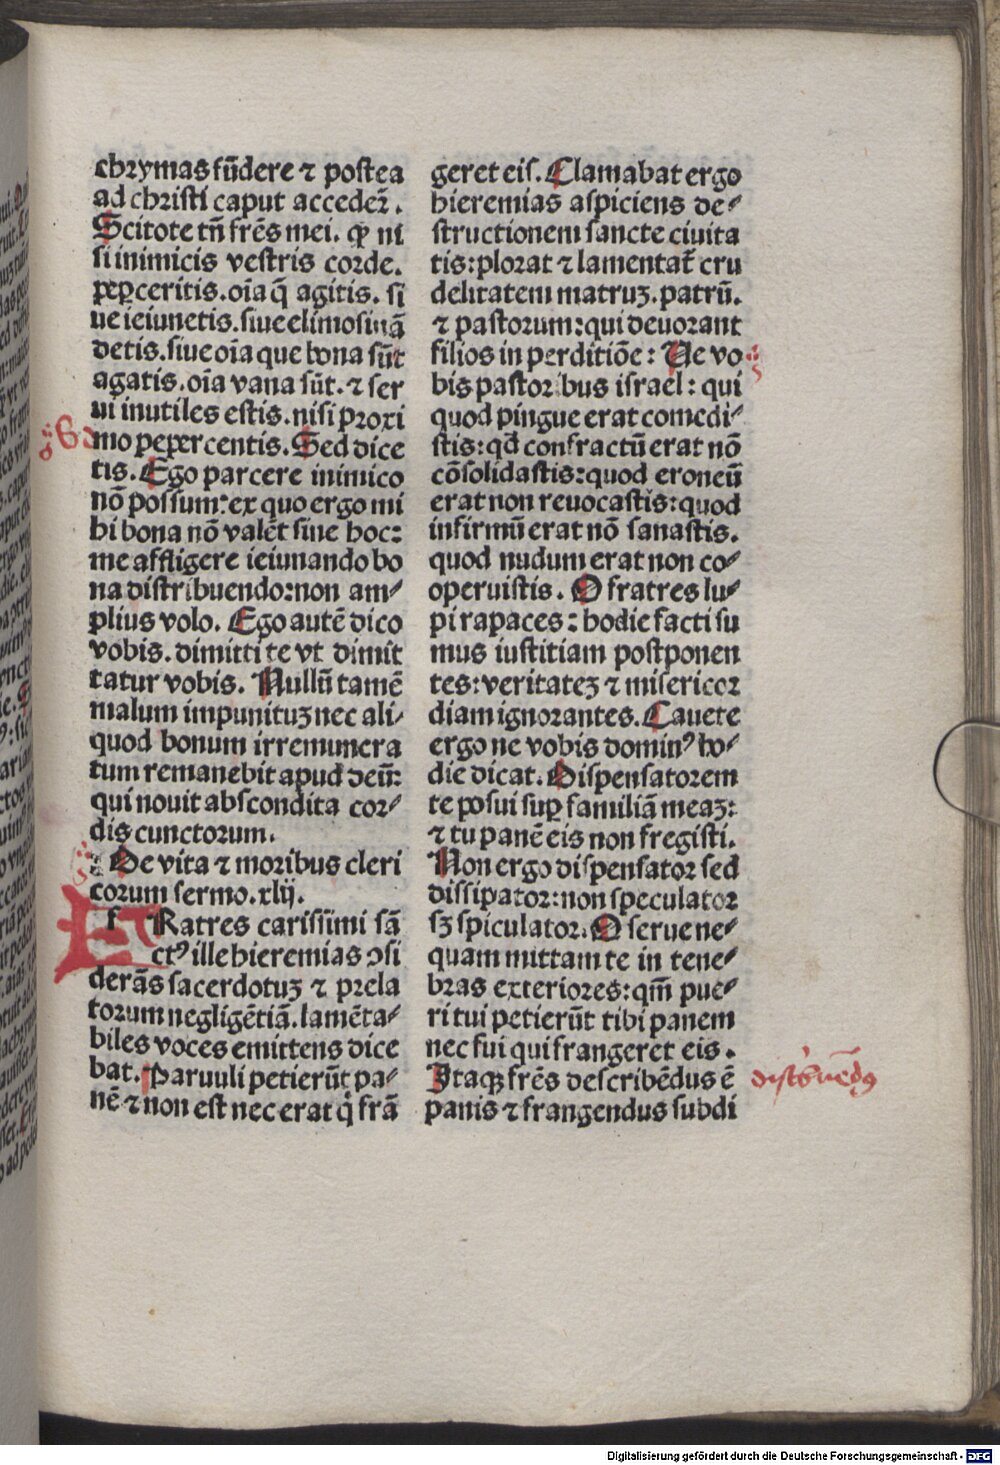 chrymas fūdere ⁊ postea
ad christi caput accederᷓ.
Scitote tn̄ frēs mei. ꝙ ni
si inimicis vestris corde.
peꝑceritis. oīa q̄ agitis. si
ue ieiunetis. siue elimosinā
detis. siue oīa que bona sūt
agatis. oīa vana sūt. ⁊ ser
ui inutiles estis. nisi proxi
mo pepercentis. Sed dice
tis. Ego parcere inimico
nō possum: ex quo ergo mi
hi bona nō valēt sine hoc:
me affligere ieiunando bo
na distribuendo: non am⸗
plius volo. Ego autē dico
vobis. dimitti te vt dimit
tatur vobis. Nullū tamē
malum impunituꝫ nec ali⸗
quod bonum irremunera
tum remanebit apud deū:
qui nouit abscondita cor⸗
dis cunctorum.
De vita ⁊ moribus cleri
corum sermo. xlij.
f Ratres carissimi sā
ctꝰ ille hieremias ↄsi
derās sacerdotuꝫ ⁊ prela
torum negligētiā. lamēta⸗
biles voces emittens dice
bat. Paruuli petierūt pa⸗
nē ⁊ non est nec erat q̇ frā
geret eis. Clamabat ergo
hieremias aspiciens de⸗
structionem sancte ciuita
tis: plorat ⁊ lamentat̄ cru
delitatem matruꝫ. patrū.
⁊ pastorum: qui deuorant
filios in perditiōe: Ue vo
bis pastoribus israel: qui
quod pingue erat comedi⸗
stis: qd̄ confractū erat nō
cōsolidastis: quod eroneū
erat non reuocastis: quod
infirmū erat nō sanastis.
quod nudum erat non co⸗
operuistis. O fratres lu⸗
pi rapaces: hodie facti su
mus iustitiam postponen
tes: veritateꝫ ⁊ misericor
diam ignorantes. Cauete
ergo ne vobis dominꝰ ho⸗
die dicat. Dispensatorem
te posui suꝑ familiā meaꝫ:
⁊ tu panē eis non fregisti.
Non ergo dispensator sed
dissipator: non speculator
sꝫ spiculator. O serue ne⸗
quam mittam te in tene⸗
bras exteriores: qm̄ pue⸗
ri tui petierūt tibi panem
nec fui qui frangeret eis.
Itaqꝫ frēs describēdus ē
panis ⁊ frangendus subdi
Digitalisierung gefördert durch die Deutsche Forschungsgemeinschaft - DFG